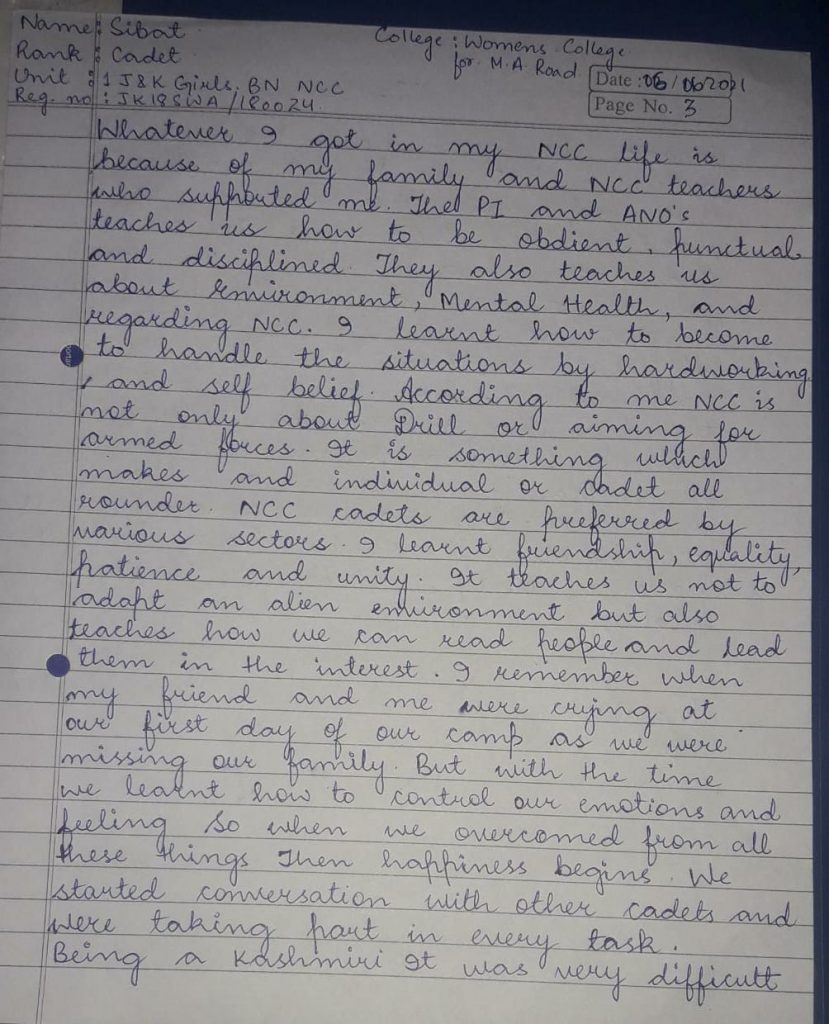 Name : Sibat
College : Womens College
Rank : Cadet
for M.A. Road
Unit : 1 J&K Girls, BN NCC
Date : 06/062021
Reg. no : JK18SWA/180024.
Page No. 3
Whatever I got in my NCC life is
because of my family and NCC teachers
who supported me. The PI and ANO's
teaches us how to be obdient, punctual
and disciplined. They also teaches us
about environment, Mental Health, and
regarding NCC. I learnt how to become
to handle the situations by hardworking
, and self belief. According to me NCC is
not only about Drill or aiming for
armed forces. It is something which
makes and individual or cadet all
rounder. NCC cadets are preferred by
various sectors. I learnt friendship, equality,
patience and unity. It teaches us not to
adapt an alien environment but also
teaches how we can read people and lead
them in the interest. I remember when
my friend and me were crying at
our first day of our camp as we were
missing our family. But with the time
we learnt how to control our emotions and
feeling so when we overcomed from all
these things then happiness begins. We
started conversation with other cadets and
were taking part in every task.
Being a Kashmiri It was very difficult